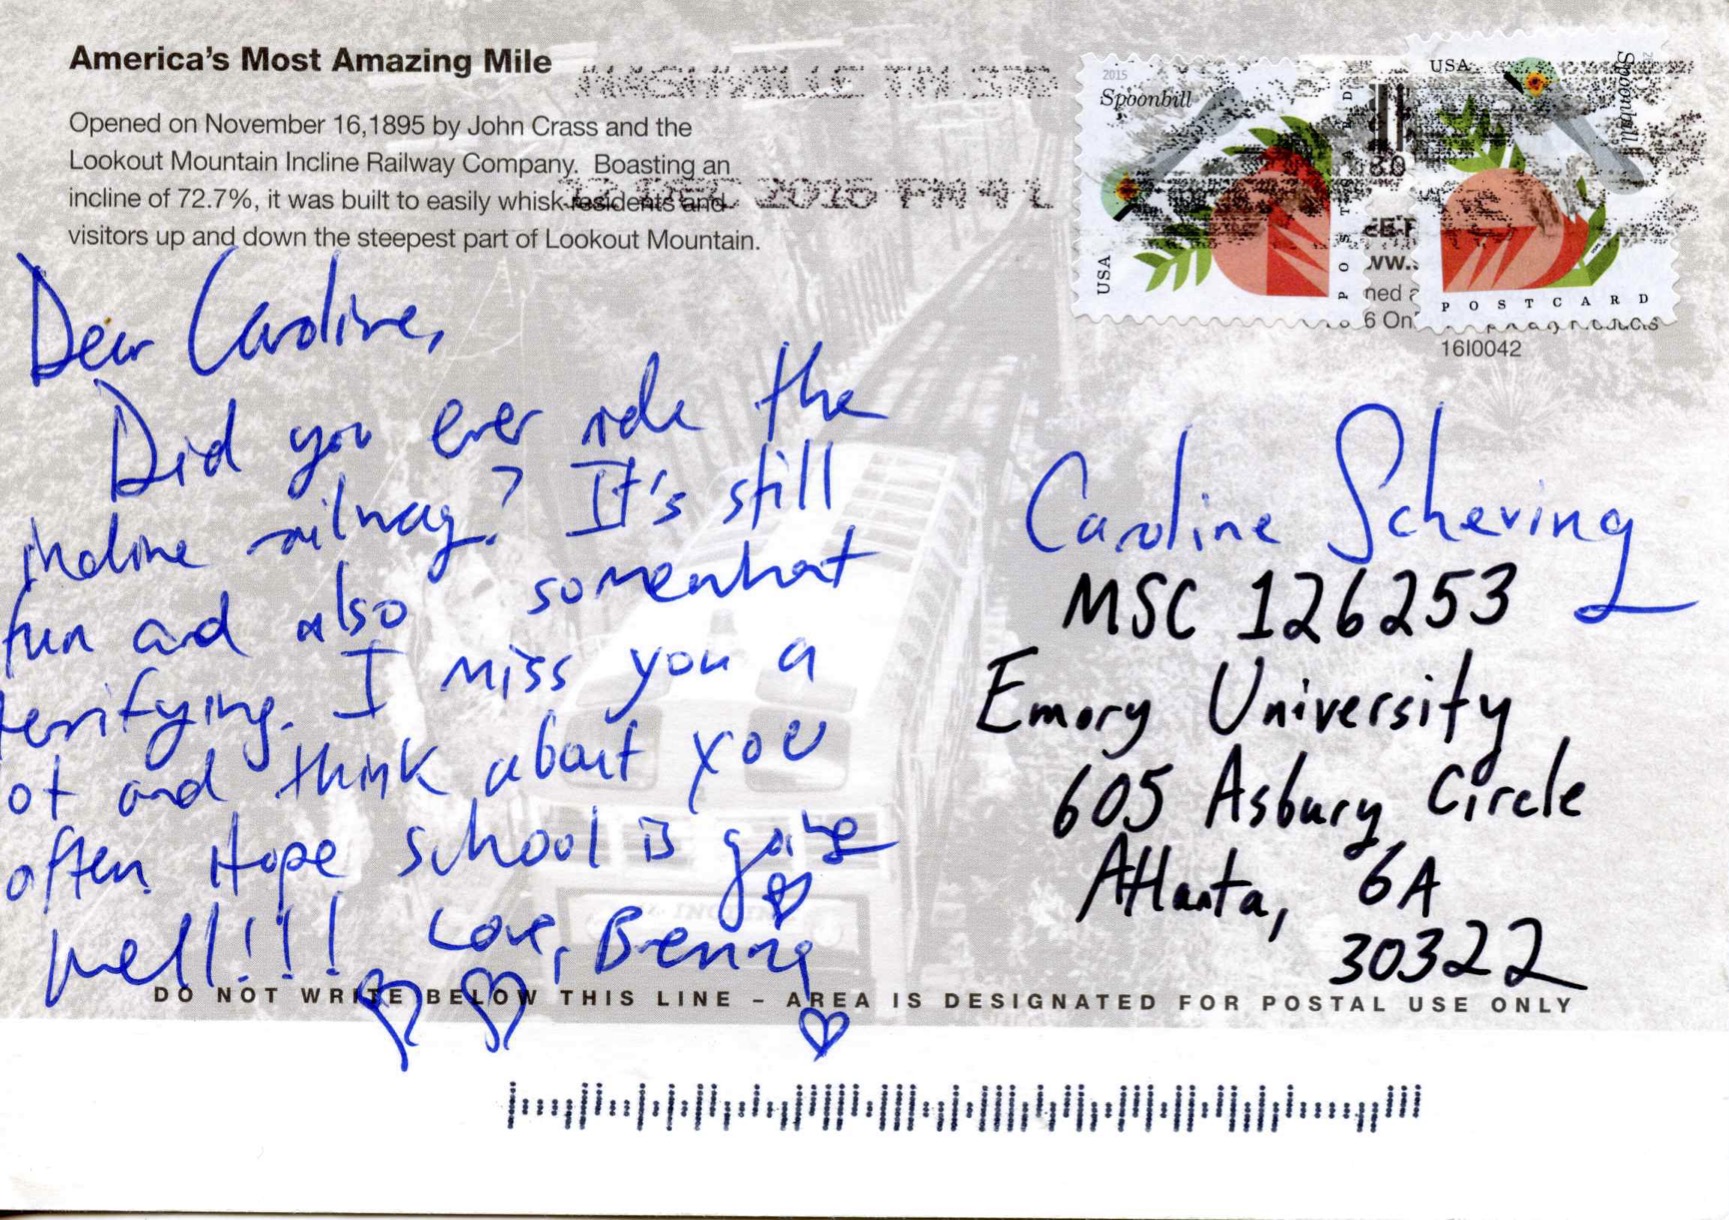 America's Most Amazing Mile
Opened on November 16,1895 by John Crass and the
Lookout Mountain Incline Railway Company. Boasting an
incline of 72.7%, it was built to easily whisk residents and
visitors up and down the steepest part of Lookout Mountain.
NASHVILLE TN 370
DEC 2016 PM 4 L
2015
Spoonbill
USA
POSTCARD
USA
Spoonbill
POSTCARD
16I0042
Dear Caroline,
Did you ever ride the
incline railway? It's still
fun and also somewhat
terrifying. I miss you a
lot and think about you
often. Hope school is going
well!!! Love, Brenna
Caroline Schering
MSC 126253
Emory University
605 Asbury Circle
Atlanta, GA
30322
DO NOT WRITE BELOW THIS LINE – AREA IS DESIGNATED FOR POSTAL USE ONLY